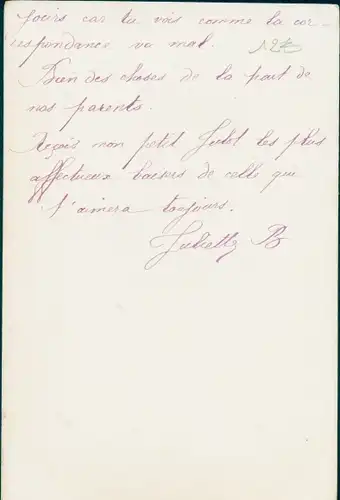 jours car tu vois comme la cor-
respondance va mal.
12€
Bien des choses de la part de
nos parents.
Reçois mon petit Julot les plus
affectueux baisers de celle qui
t'aimera toujours.
Juliette B